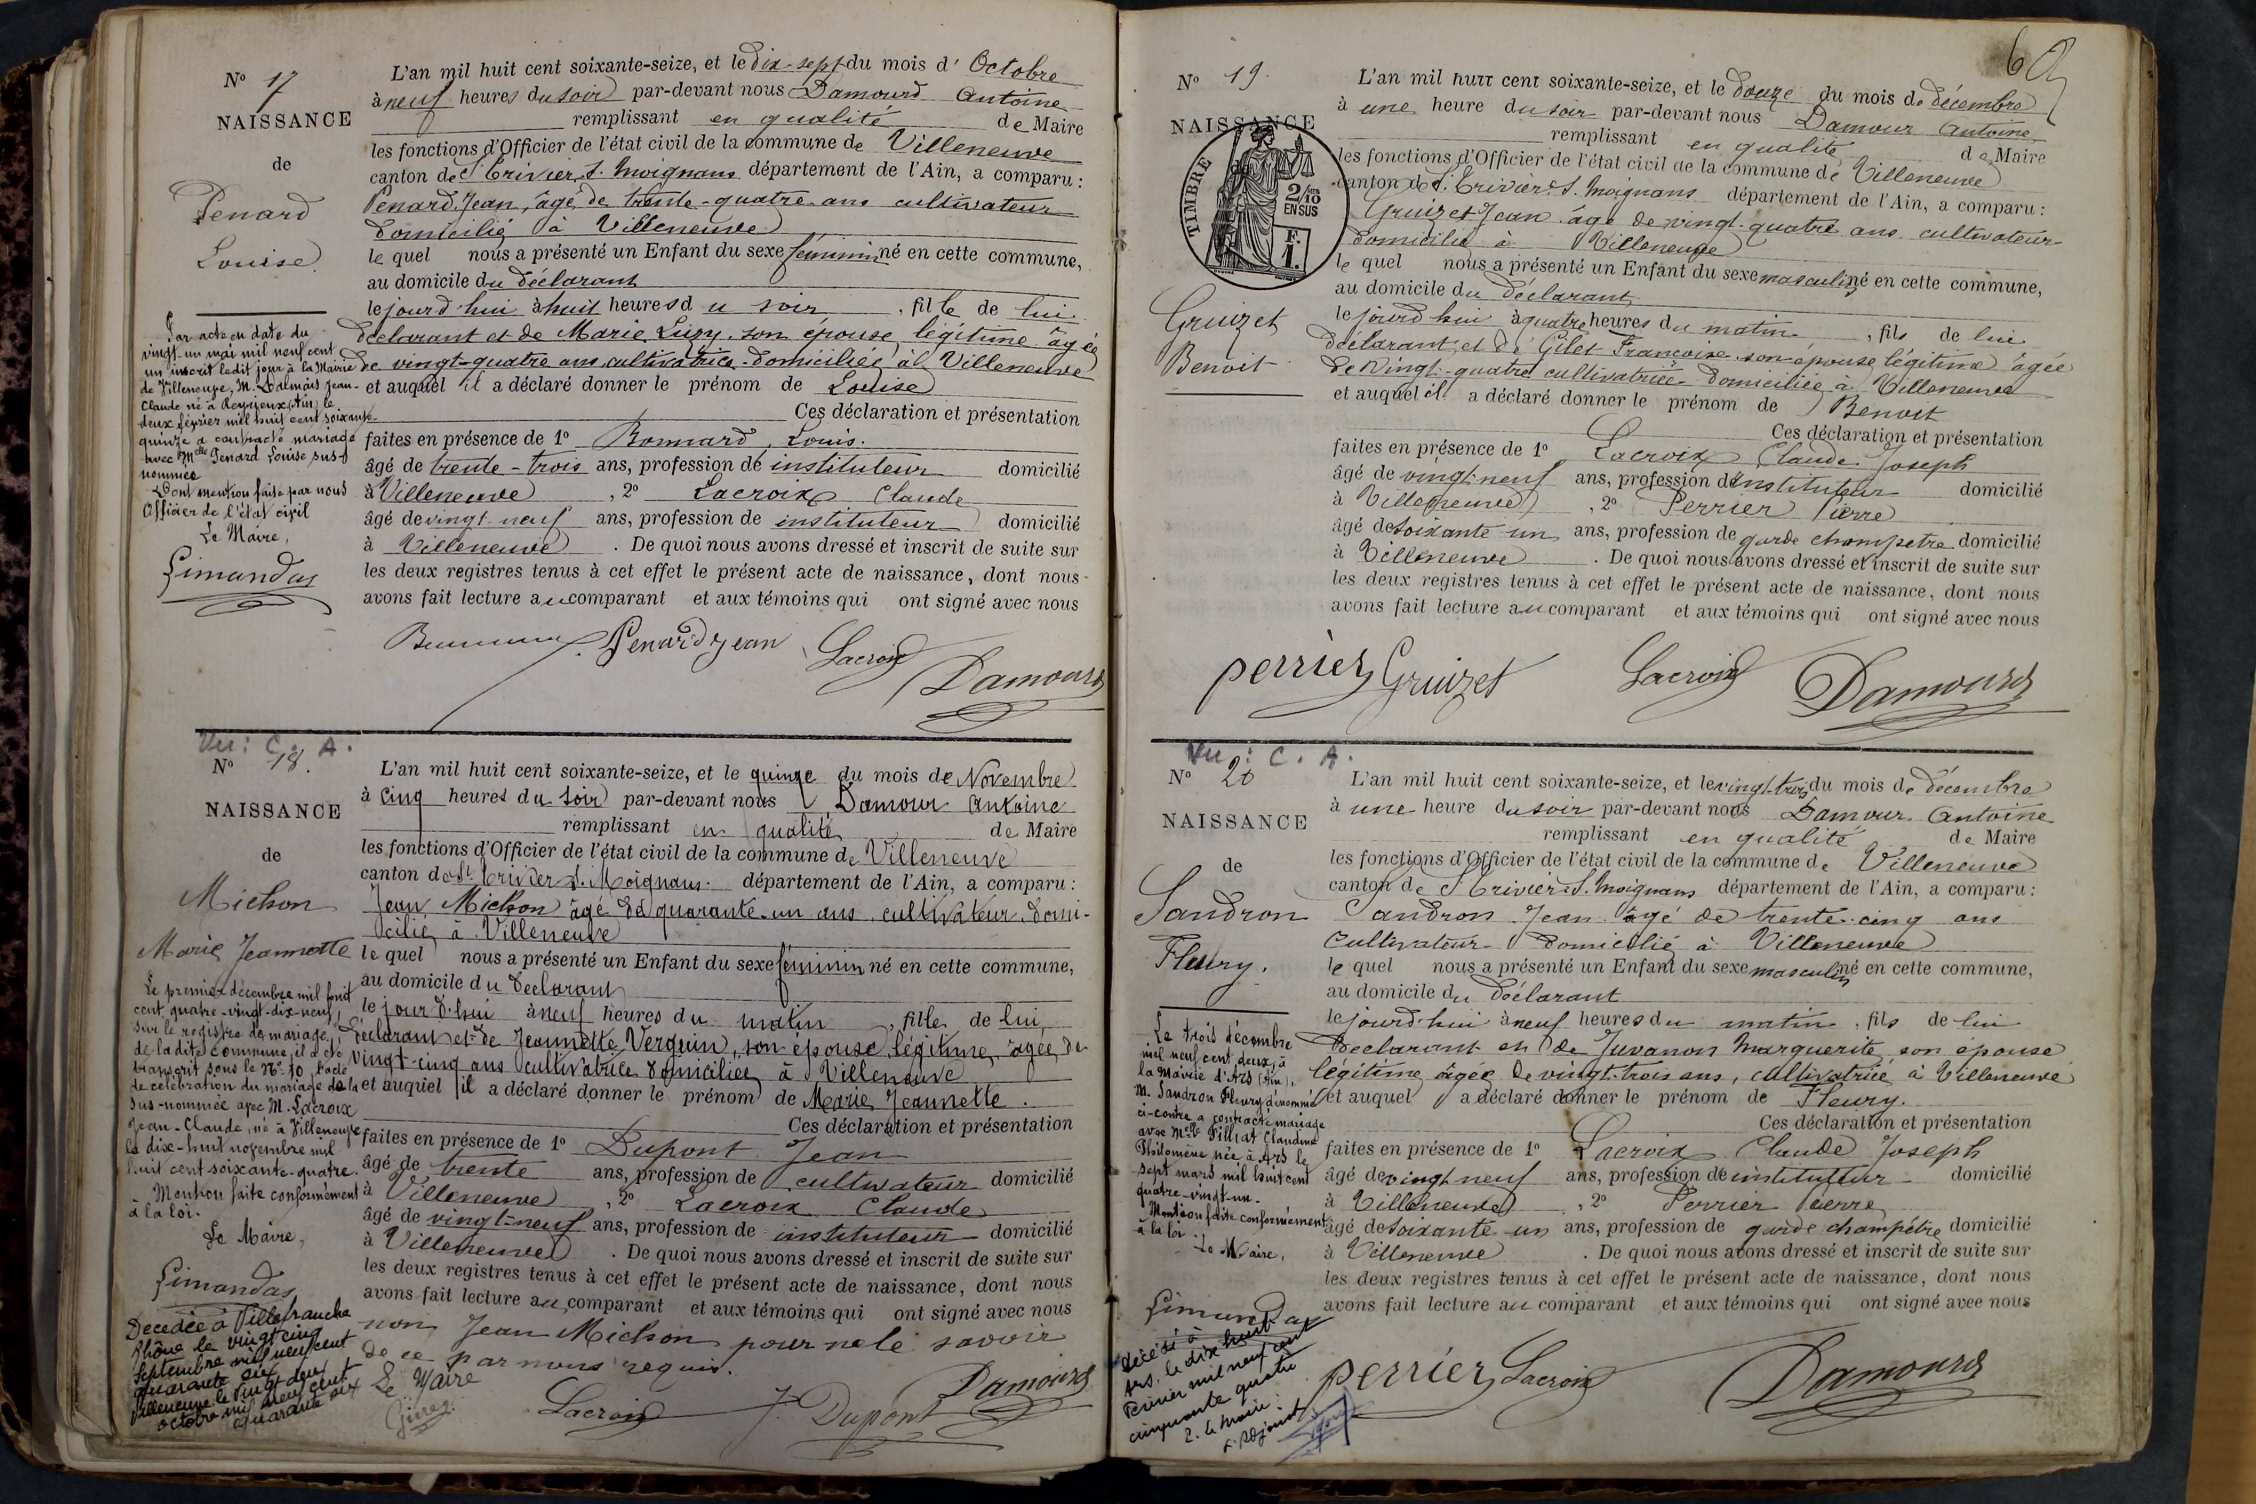 N° 17
NAISSANCE
de
Penard
Louise
Par acte en date du
vingt-un mai mil neuf cent
un inscrit ledit jour à la Mairie
de Villeneuve, M. Dalmais Jean-
Claude né à Reyrieux (Ain) le
deux février mil huit cent soixante-
quinze a contracté mariage
avec Melle Penard Louise sus-
nommée
Dont mention faite par nous
Officier de l'état civil
Le Maire,
Limandas
L'an mil huit cent soixante-seize, et le dix-sept du mois d'Octobre
à neuf heures du soir par-devant nous Damourd Antoine
remplissant en qualité de Maire
les fonctions d'Officier de l'état civil de la commune de Villeneuve
canton de St Trivier s. Moignans département de l'Ain, a comparu :
Penard Jean, âgé de trente-quatre ans cultivateur
domicilié à Villeneuve
le quel nous a présenté un Enfant du sexe féminin né en cette commune,
au domicile du déclarant
le jourd'hui à huit heures du soir, fille de lui
déclarant et de Marie Lusy son épouse légitime âgée
de vingt-quatre ans cultivatrice domiciliée à Villeneuve
et auquel il a déclaré donner le prénom de Louise
Ces déclaration et présentation
faites en présence de 1° Bonnard, Louis.
âgé de trente-trois ans, profession de instituteur domicilié
à Villeneuve, 2° Lacroix Claude
âgé de vingt-neuf ans, profession de instituteur domicilié
à Villeneuve. De quoi nous avons dressé et inscrit de suite sur
les deux registres tenus à cet effet le présent acte de naissance, dont nous
avons fait lecture au comparant et aux témoins qui ont signé avec nous
Penard Jean Lacroix
Damourd
Vu : C. A.
N° 18.
NAISSANCE
de
Michon
Marie Jeannette
Le premier décembre mil huit
cent quatre-vingt-dix-neuf,
sur le registre de mariage
de ladite commune, il a été
transcrit sous le N° 10, l'acte
de célébration du mariage de la
sus-nommée avec M. Lacroix
Jean-Claude, né à Villeneuve
le dix-huit novembre mil
huit cent soixante-quatre.
Mention faite conformément
à la loi.
Le Maire,
Limandas
Décédée à Villefranche
Rhône le vingt cinq
Septembre mil neuf cent
quarante six
Villeneuve le vingt deux
octobre mil neuf cent
quarante six
Le Maire
L'an mil huit cent soixante-seize, et le quinze du mois de Novembre
à cinq heures du soir par-devant nous Damour Antoine
remplissant en qualité de Maire
les fonctions d'Officier de l'état civil de la commune de Villeneuve
canton de St Trivier s. Moignans. département de l'Ain, a comparu :
Jean Michon âgé de quarante-un ans cultivateur domi-
cilié à Villeneuve
le quel nous a présenté un Enfant du sexe féminin né en cette commune,
au domicile du déclarant
le jour d'hui à neuf heures du matin, fille de lui,
déclarant et de Jeannette Verguin, son épouse légitime, âgée de
vingt-cinq ans cultivatrice domiciliée à Villeneuve
et auquel il a déclaré donner le prénom de Marie Jeannette.
Ces déclaration et présentation
faites en présence de 1° Dupont Jean
âgé de trente ans, profession de cultivateur domicilié
à Villeneuve, 2° Lacroix Claude
âgé de vingt-neuf ans, profession de instituteur domicilié
à Villeneuve. De quoi nous avons dressé et inscrit de suite sur
les deux registres tenus à cet effet le présent acte de naissance, dont nous
avons fait lecture au comparant et aux témoins qui ont signé avec nous
non Jean Michon pour ne le savoir
de ce par nous requis.
Lacroix J. Dupont Damourd
60
N° 19.
NAISSANCE
TIMBRE
2/10 EN SUS
F. 1.
Gruizet
Benoit
L'an mil huit cent soixante-seize, et le douze du mois de décembre
à une heure du soir par-devant nous Damour Antoine
remplissant en qualité de Maire
les fonctions d'Officier de l'état civil de la commune de Villeneuve
canton de St. Trivier s. Moignans département de l'Ain, a comparu :
Gruizet Jean âgé de vingt-quatre ans cultivateur
domicilié à Villeneuve
le quel nous a présenté un Enfant du sexe masculin né en cette commune,
au domicile du déclarant
le jourd'hui à quatre heures du matin, fils de lui
déclarant et de Gilet Françoise son épouse légitime âgée
de vingt-quatre cultivatrice domiciliée à Villeneuve
et auquel il a déclaré donner le prénom de Benoit
Ces déclaration et présentation
faites en présence de 1° Lacroix Claude Joseph
âgé de vingt-neuf ans, profession d'instituteur domicilié
à Villeneuve, 2° Perrier Pierre
âgé de soixante un ans, profession de garde champêtre domicilié
à Villeneuve. De quoi nous avons dressé et inscrit de suite sur
les deux registres tenus à cet effet le présent acte de naissance, dont nous
avons fait lecture au comparant et aux témoins qui ont signé avec nous
perrier Gruizet Lacroix Damourd
Vu : C. A.
N° 20
NAISSANCE
de
Sandron
Fleury.
Le trois décembre
mil neuf cent deux, à
la Mairie d'Ars (Ain),
M. Sandron Fleury dénommé
ci-contre a contracté mariage
avec Melle Pilliat Claudine
Philomène née à Ars le
sept mars mil huit cent
quatre-vingt-un.
Mention faite conformément
à la loi.
Le Maire,
Limandas
Décédé à
Ars, le dix huit
Février mil neuf cent
cinquante quatre
P. le Maire :
L'Adjoint
L'an mil huit cent soixante-seize, et le vingt-trois du mois de décembre
à une heure du soir par-devant nous Damour Antoine
remplissant en qualité de Maire
les fonctions d'Officier de l'état civil de la commune de Villeneuve
canton de St Trivier s. Moignans département de l'Ain, a comparu :
Sandron Jean âgé de trente-cinq ans
cultivateur domicilié à Villeneuve
le quel nous a présenté un Enfant du sexe masculin né en cette commune,
au domicile du déclarant
le jourd'hui à neuf heures du matin, fils de lui
déclarant et de Juvanon Marguerite son épouse
légitime âgée de vingt-trois ans, cultivatrice à Villeneuve
et auquel a déclaré donner le prénom de Fleury.
Ces déclaration et présentation
faites en présence de 1° Lacroix Claude Joseph
âgé de vingt-neuf ans, profession de instituteur domicilié
à Villeneuve, 2° Perrier Pierre
âgé de soixante un ans, profession de garde champêtre domicilié
à Villeneuve. De quoi nous avons dressé et inscrit de suite sur
les deux registres tenus à cet effet le présent acte de naissance, dont nous
avons fait lecture au comparant et aux témoins qui ont signé avec nous
perrier Lacroix Damourd